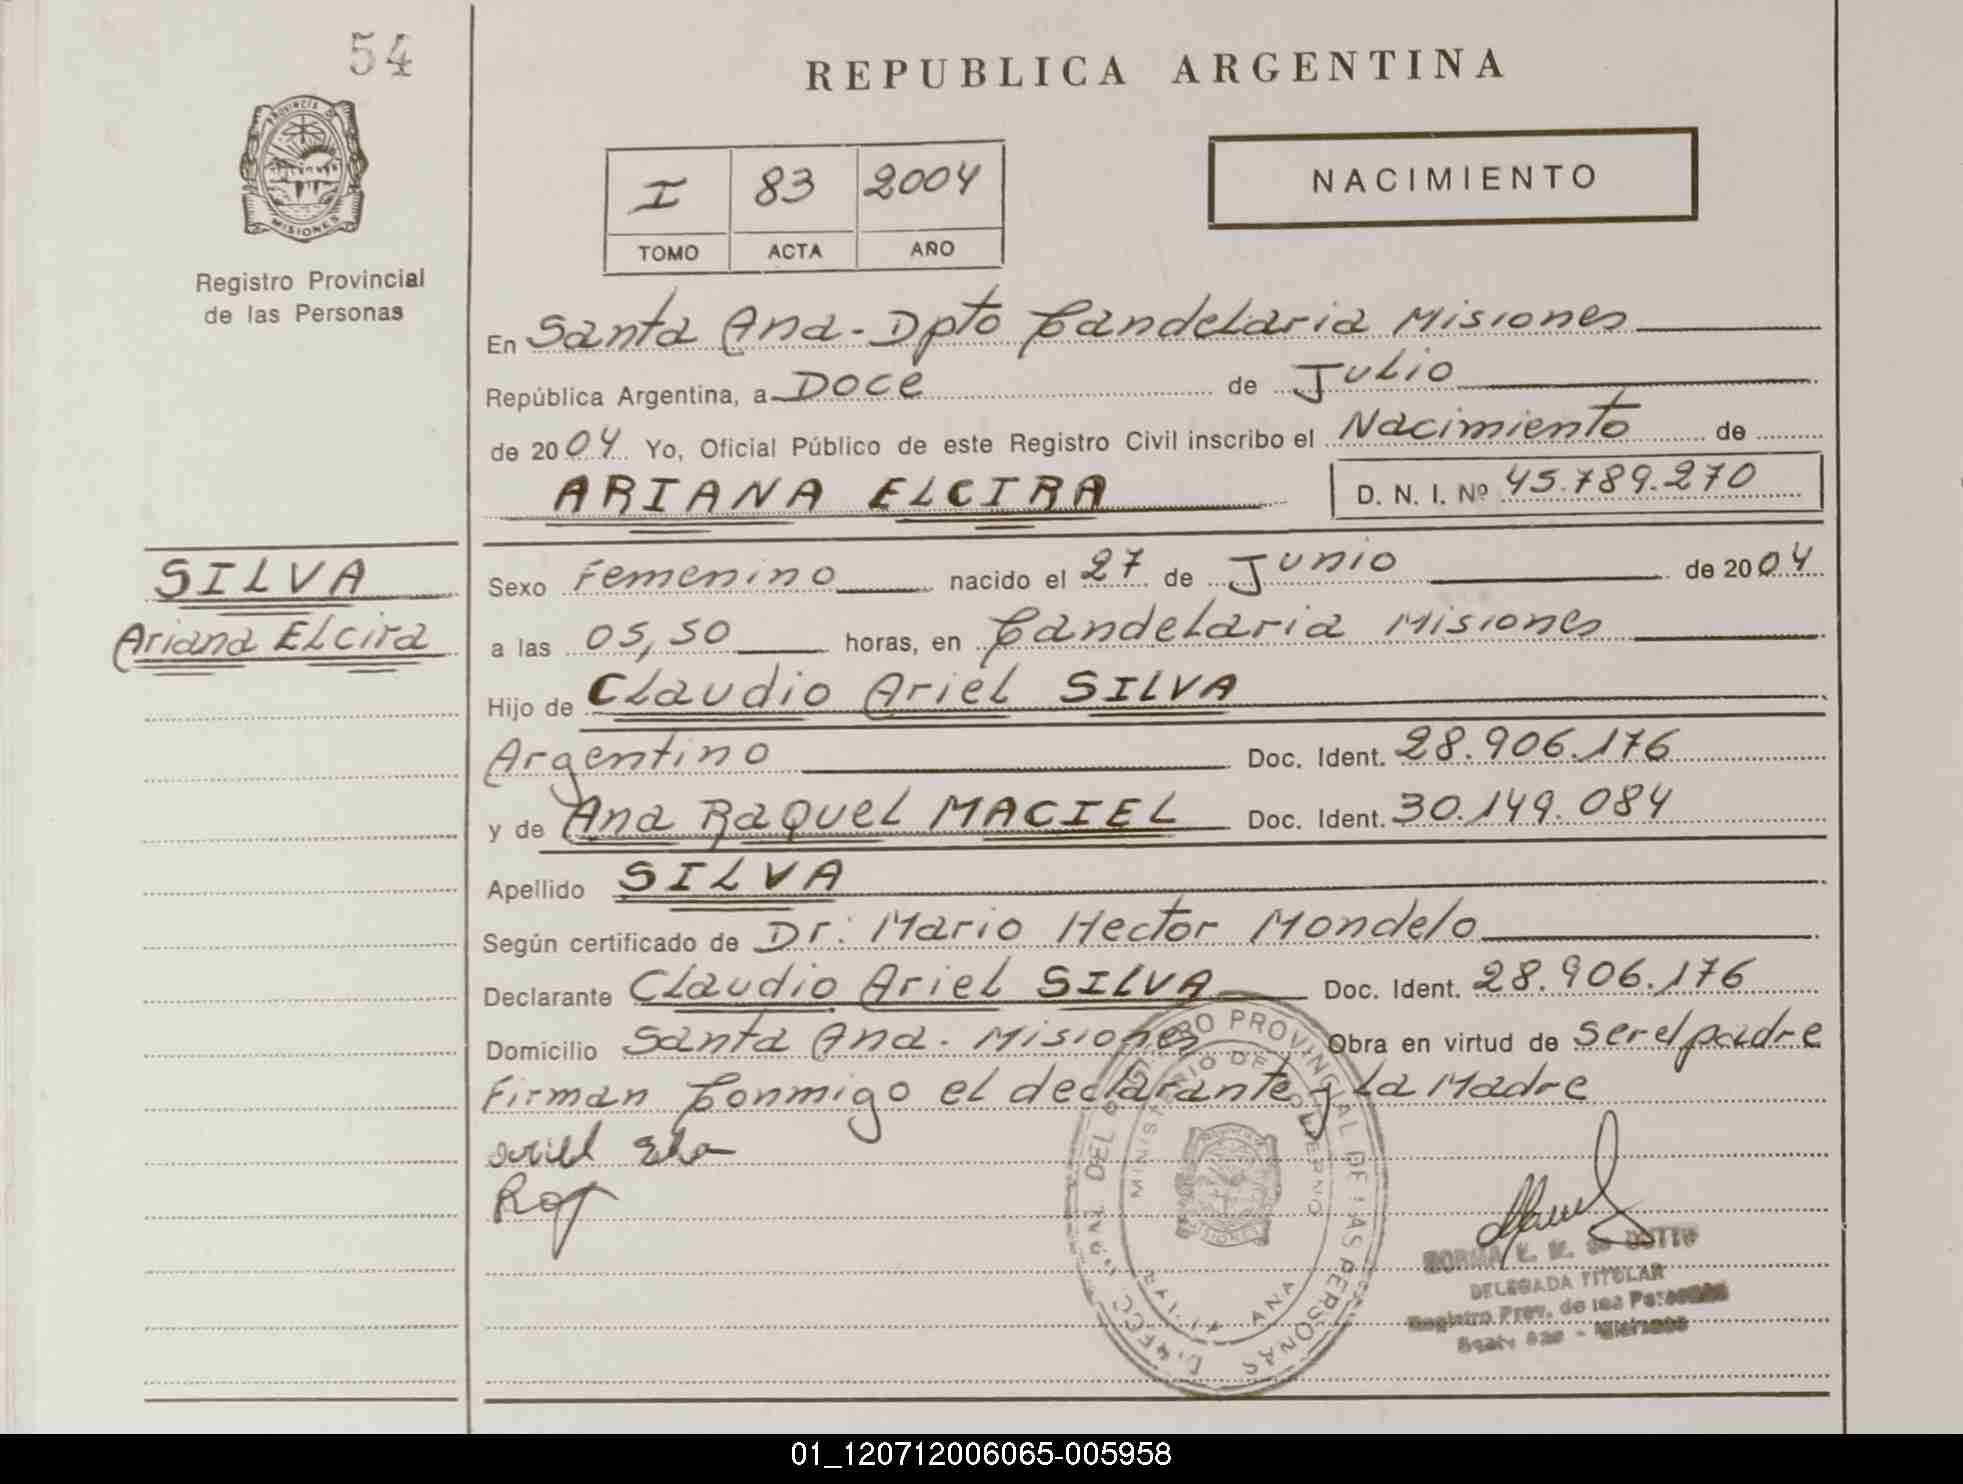 54
REPUBLICA ARGENTINA
PROVINCIA DE
MISIONES
I 83 2004
TOMO ACTA AÑO
NACIMIENTO
Registro Provincial
de las Personas
En Santa Ana - Dpto Candelaria Misiones
República Argentina, a Doce de Julio
de 2004 Yo, Oficial Público de este Registro Civil inscribo el Nacimiento de
ARIANA ELCIRA D. N. I. Nº 45.789.270
SILVA
Ariana ELcira
Sexo Femenino nacido el 27 de Junio de 2004
a las 05,50 horas, en Candelaria Misiones
Hijo de Claudio Ariel SILVA
Argentino Doc. Ident. 28.906.176
y de Ana Raquel MACIEL Doc. Ident. 30.149.084
Apellido SILVA
Según certificado de Dr. Mario Hector Mondelo
Declarante Claudio Ariel SILVA Doc. Ident. 28.906.176
Domicilio Santa Ana - Misiones Obra en virtud de ser el padre
Firman Conmigo el declarante y La Madre
REGISTRO PROVINCIAL DE LAS PERSONAS
MINISTERIO DE GOBIERNO
MISIONES
ANA
NORMA
DELEGADA TITULAR
Registro Prov. de las Personas
Santa Ana - Misiones
01_120712006065-005958